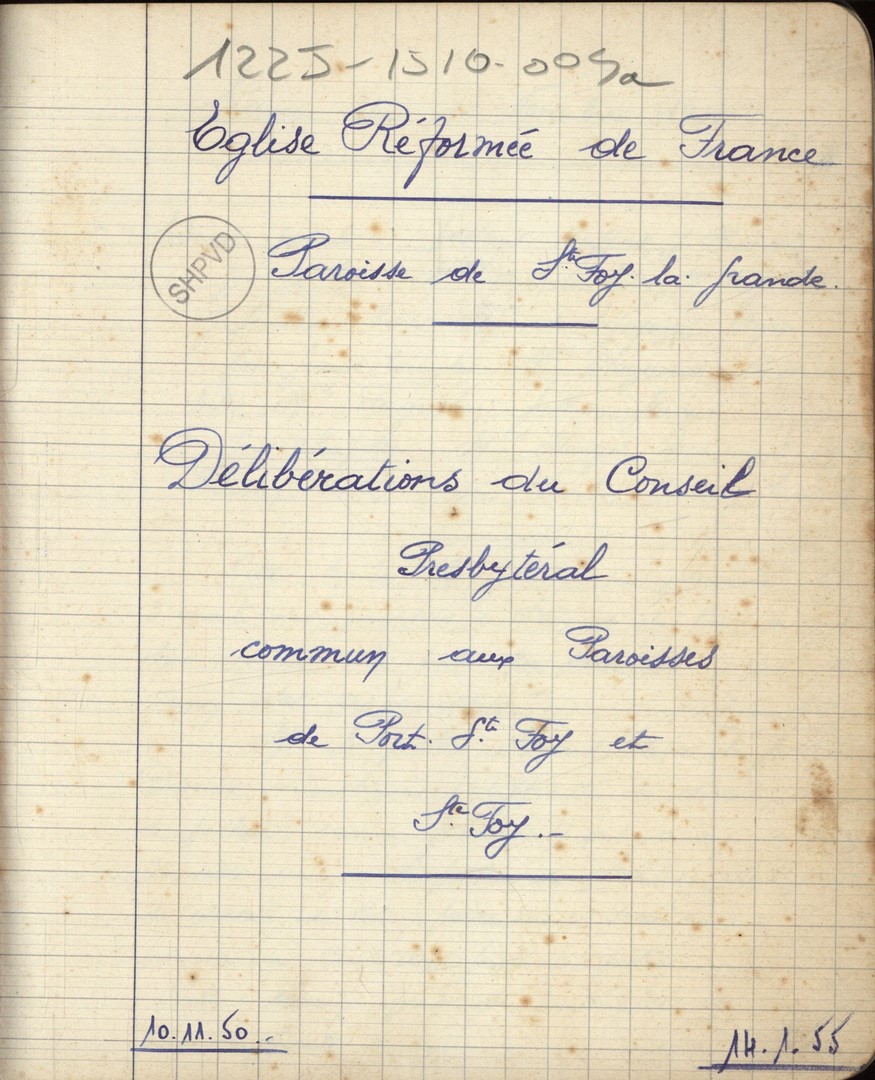 122J-1510-004a
Eglise Réformée de France
SHPVD
Paroisse de Ste Foy. la. grande.
Délibérations du Conseil
Presbytéral
commun aux Paroisses
de Port. Ste Foy et
Ste Foy.-
10.11.50.-
14.1.55